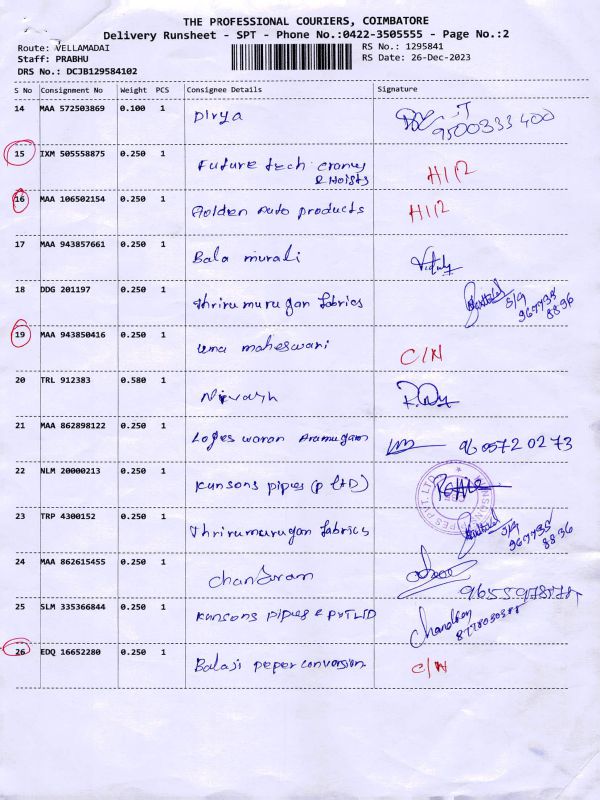 THE PROFESSIONAL COURIERS, COIMBATORE
Delivery Runsheet - SPT - Phone No.:0422-3505555 - Page No.:2
Route: VELLAMADAI
RS No.: 1295841
Staff: PRABHU
RS Date: 26-Dec-2023
DRS No.: DCJB129584102
S No Consignment No Weight PCS Consignee Details Signature
14 MAA 572503869 0.100 1 Divya 9500333400
15 IXM 505558875 0.250 1 Future tech cranes
& Hoists H112
16 MAA 106502154 0.250 1 Golden Auto products H112
17 MAA 943857661 0.250 1 Bala murali
18 DDG 201197 0.250 1 Thirumurugan fabrics S/9
8896
19 MAA 943850416 0.250 1 uma maheswari C/N
20 TRL 912383 0.580 1
21 MAA 862898122 0.250 1 Logeswaran Arumugam 9605720273
22 NLM 20000213 0.250 1 Kunsons pipes (p LTD)
23 TRP 4300152 0.250 1 Thirumurugan fabrics S/9
8836
24 MAA 862615455 0.250 1 chandram
25 SLM 335366844 0.250 1 Kunsons pipies & PVT LTD Chandran
26 EDQ 16652280 0.250 1 Balaji peper conversion C/N